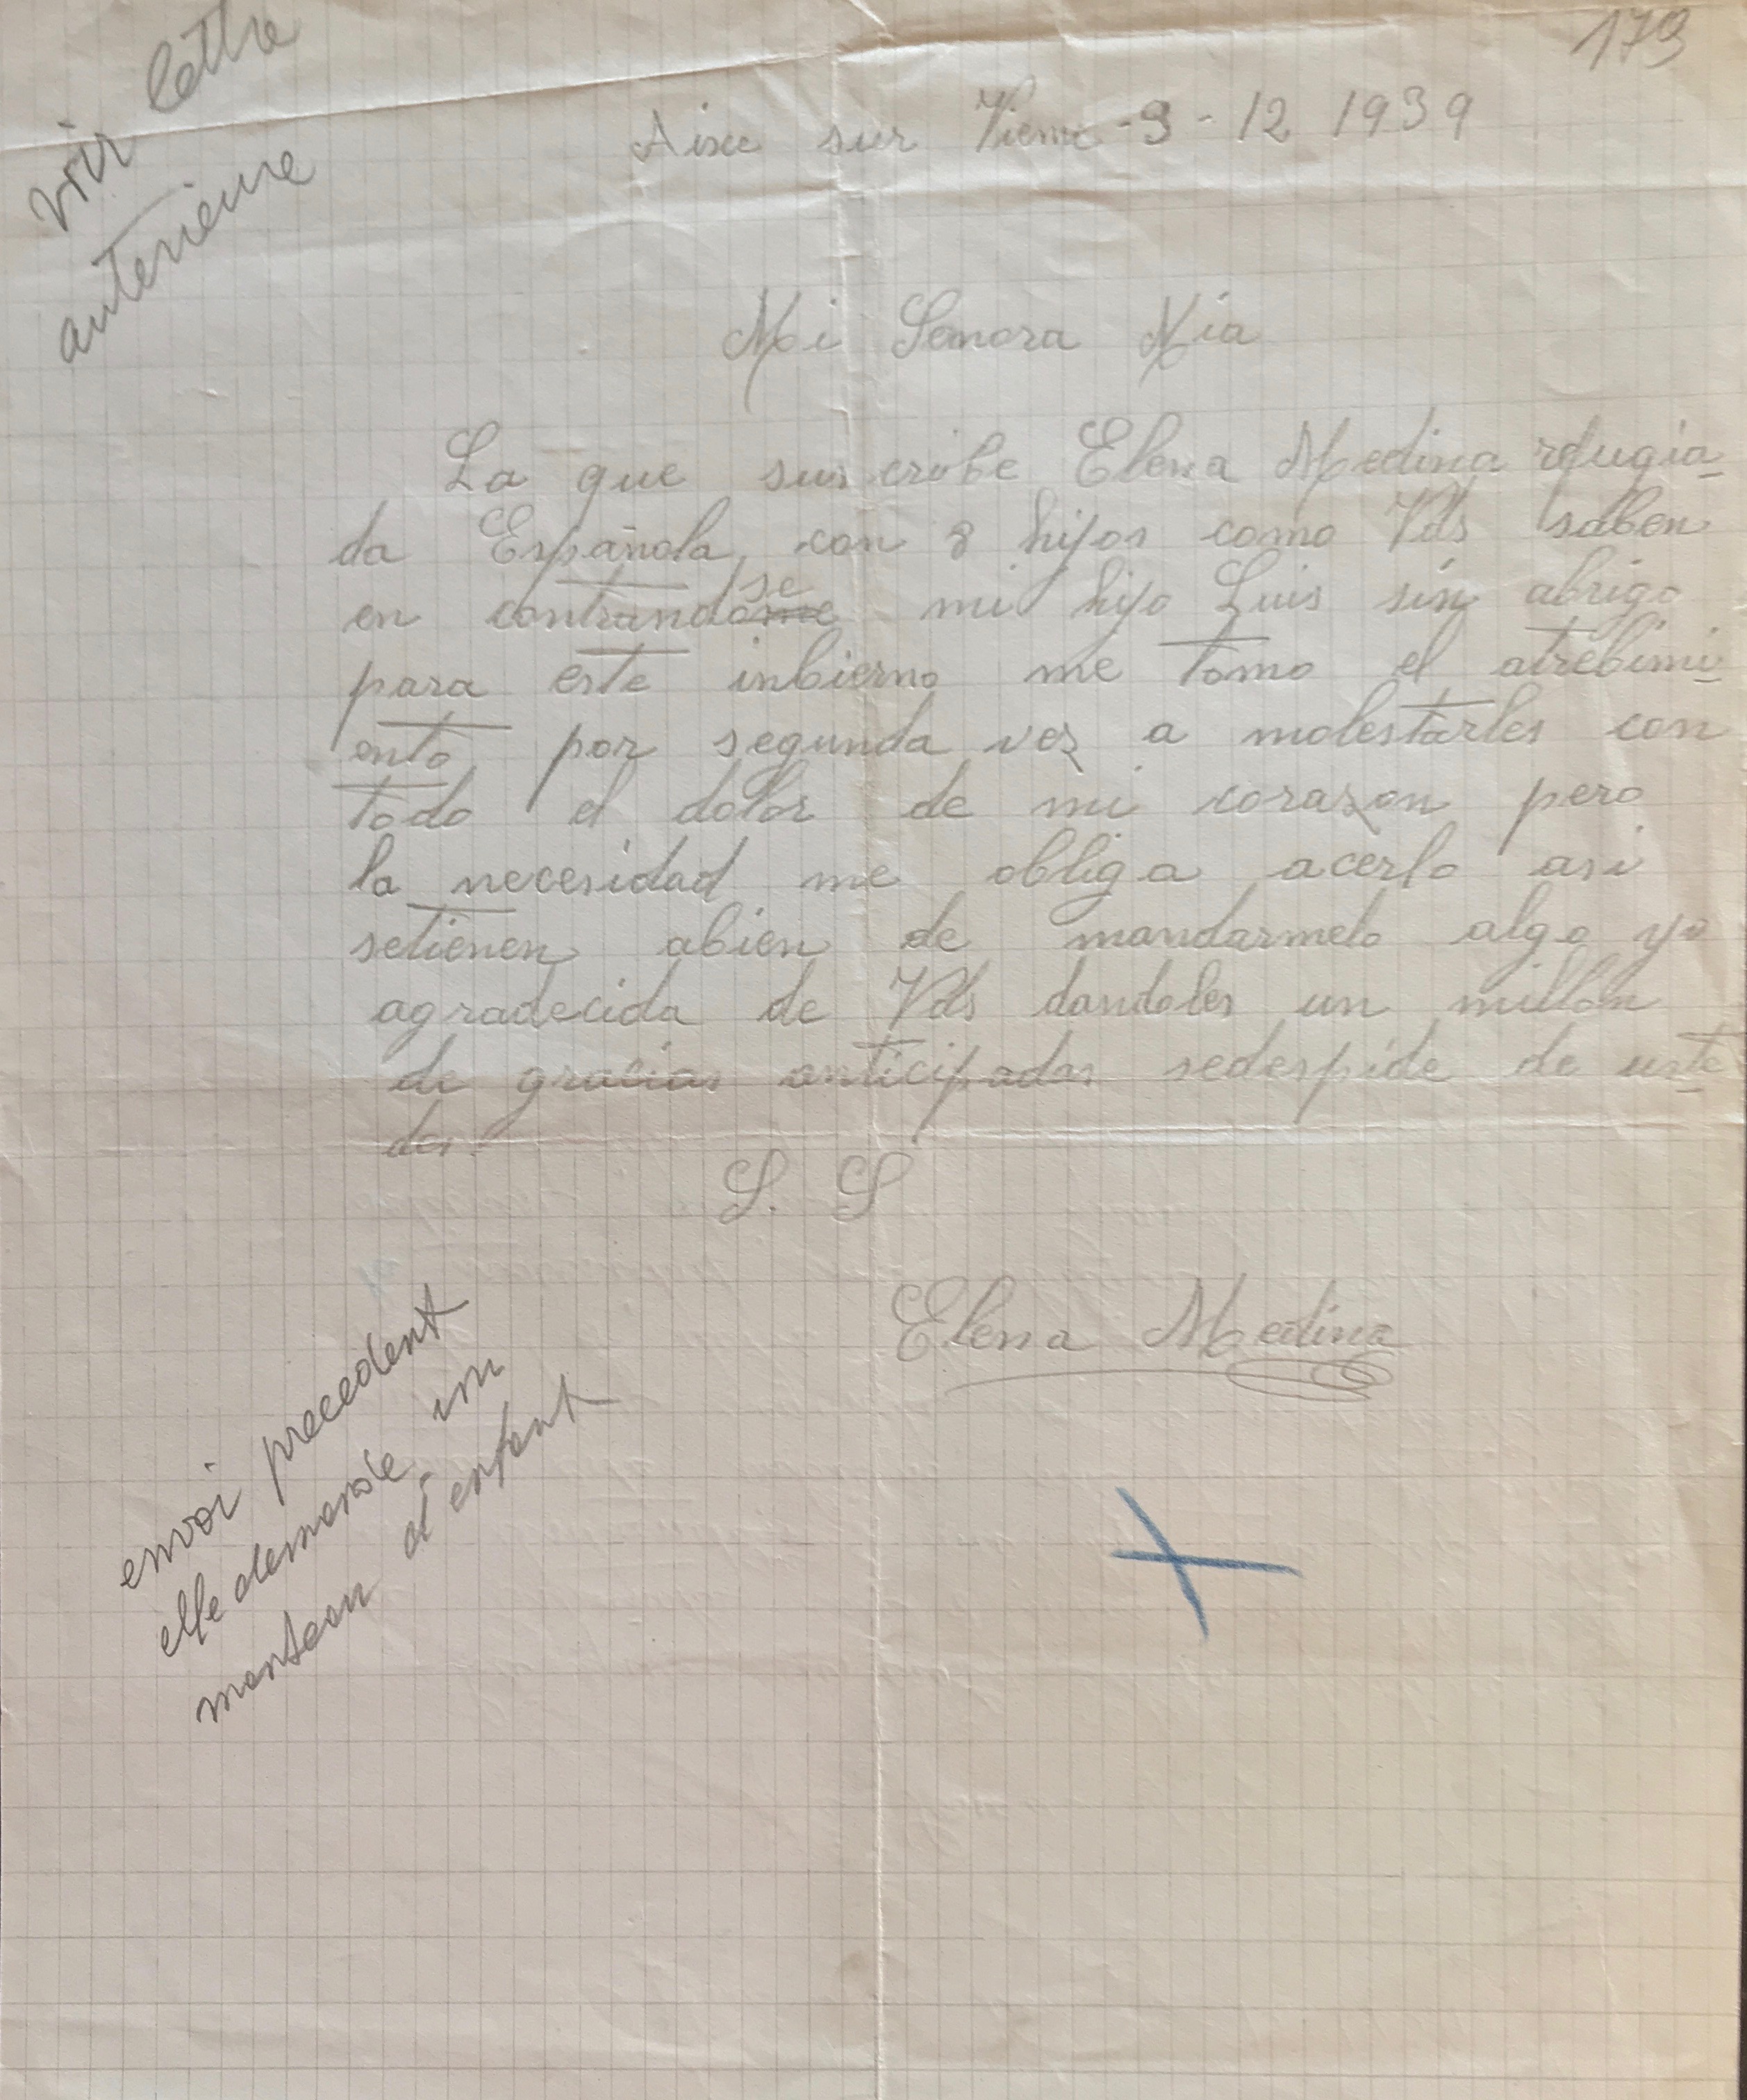 179
voir lettre
anterieure
Aixe sur Vienne - 9 - 12 1939
Mi Senora Mia
La que sus cribe Elena Medina refugia-
da Española, con 8 hijos como Vds saben
en contrandome se mi hijo Luis sin abrigo
para este inbierno me tomo el atrebimi-
ento por segunda vez a molestarles con
todo el dolor de mi corazon pero
la necesidad me obliga acerlo asi
setienen abien de mandarmelo algo yo
agradecida de Vds dandoles un millon
de gracias anticipadas sedespide de uste-
des.
S. S
Elena Medina
envoi precedent
elle demande un
manteau d'enfant